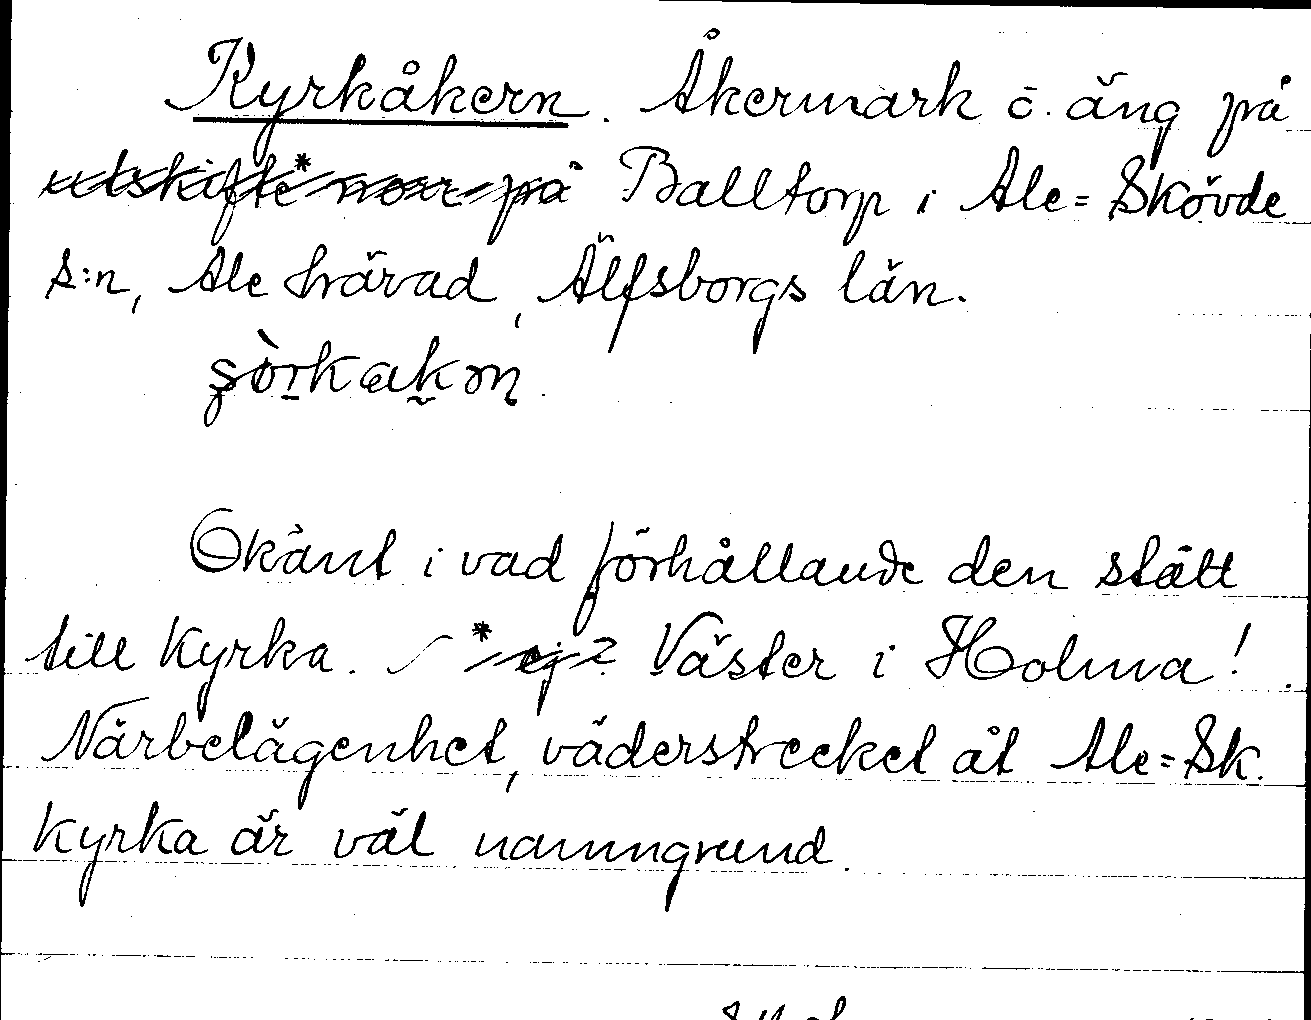 Kyrkåkern. Åkermark o. äng på
utskifte* norr på Balltorp i Ale=Skövde
s:n, Ale härad, Älfsborgs län.
Okänt i vad förhållande den stått
till Kyrka. * ej? Väster i Holma!
Närbelägenhet, väderstrecket åt Ale=Sk.
kyrka är väl namngrund.